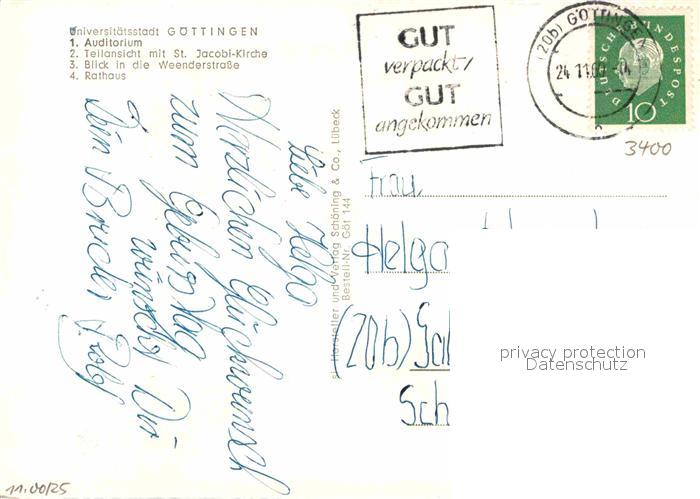 Universitätsstadt GÖTTINGEN
1. Auditorium
2. Teilansicht mit St. Jacobi-Kirche
3. Blick in die Weenderstraße
4. Rathaus
Liebe Helga
Herzlichen Glückwunsch
zum Geburtstag
wünscht Dir
Dein Bruder Rolf
Hersteller und Verlag Schöning & Co., Lübeck
Bestell-Nr. Göt 144
GUT
verpackt/
GUT
angekommen
(20b) GÖTTINGEN
24.11.60
DEUTSCHE BUNDESPOST
10
3400
Frau
Helga
(20b) Sal
Sch
privacy protection
Datenschutz
11.00/25